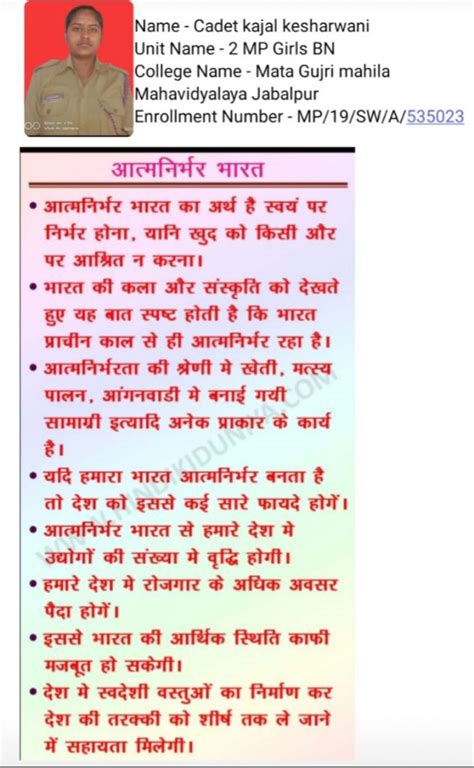 Name - Cadet kajal kesharwani
Unit Name - 2 MP Girls BN
College Name - Mata Gujri mahila
Mahavidyalaya Jabalpur
Enrollment Number - MP/19/SW/A/535023
आत्मनिर्भर भारत
• आत्मनिर्भर भारत का अर्थ है स्वयं पर
निर्भर होना, यानि खुद को किसी और
पर आश्रित न करना।
• भारत की कला और संस्कृति को देखते
हुए यह बात स्पष्ट होती है कि भारत
प्राचीन काल से ही आत्मनिर्भर रहा है।
• आत्मनिर्भरता की श्रेणी मे खेती, मत्स्य
पालन, आंगनवाडी मे बनाई गयी
सामाग्री इत्यादि अनेक प्रकार के कार्य
है।
• यदि हमारा भारत आत्मनिर्भर बनता है
तो देश को इससे कई सारे फायदे होगें।
• आत्मनिर्भर भारत से हमारे देश मे
उद्योगों की संख्या मे वृद्धि होगी।
• हमारे देश मे रोजगार के अधिक अवसर
पैदा होगें।
• इससे भारत की आर्थिक स्थिति काफी
मजबूत हो सकेगी।
• देश मे स्वदेशी वस्तुओं का निर्माण कर
देश की तरक्की को शीर्ष तक ले जाने
में सहायता मिलेगी।
WWW.HINDIKIDUNIYA.COM